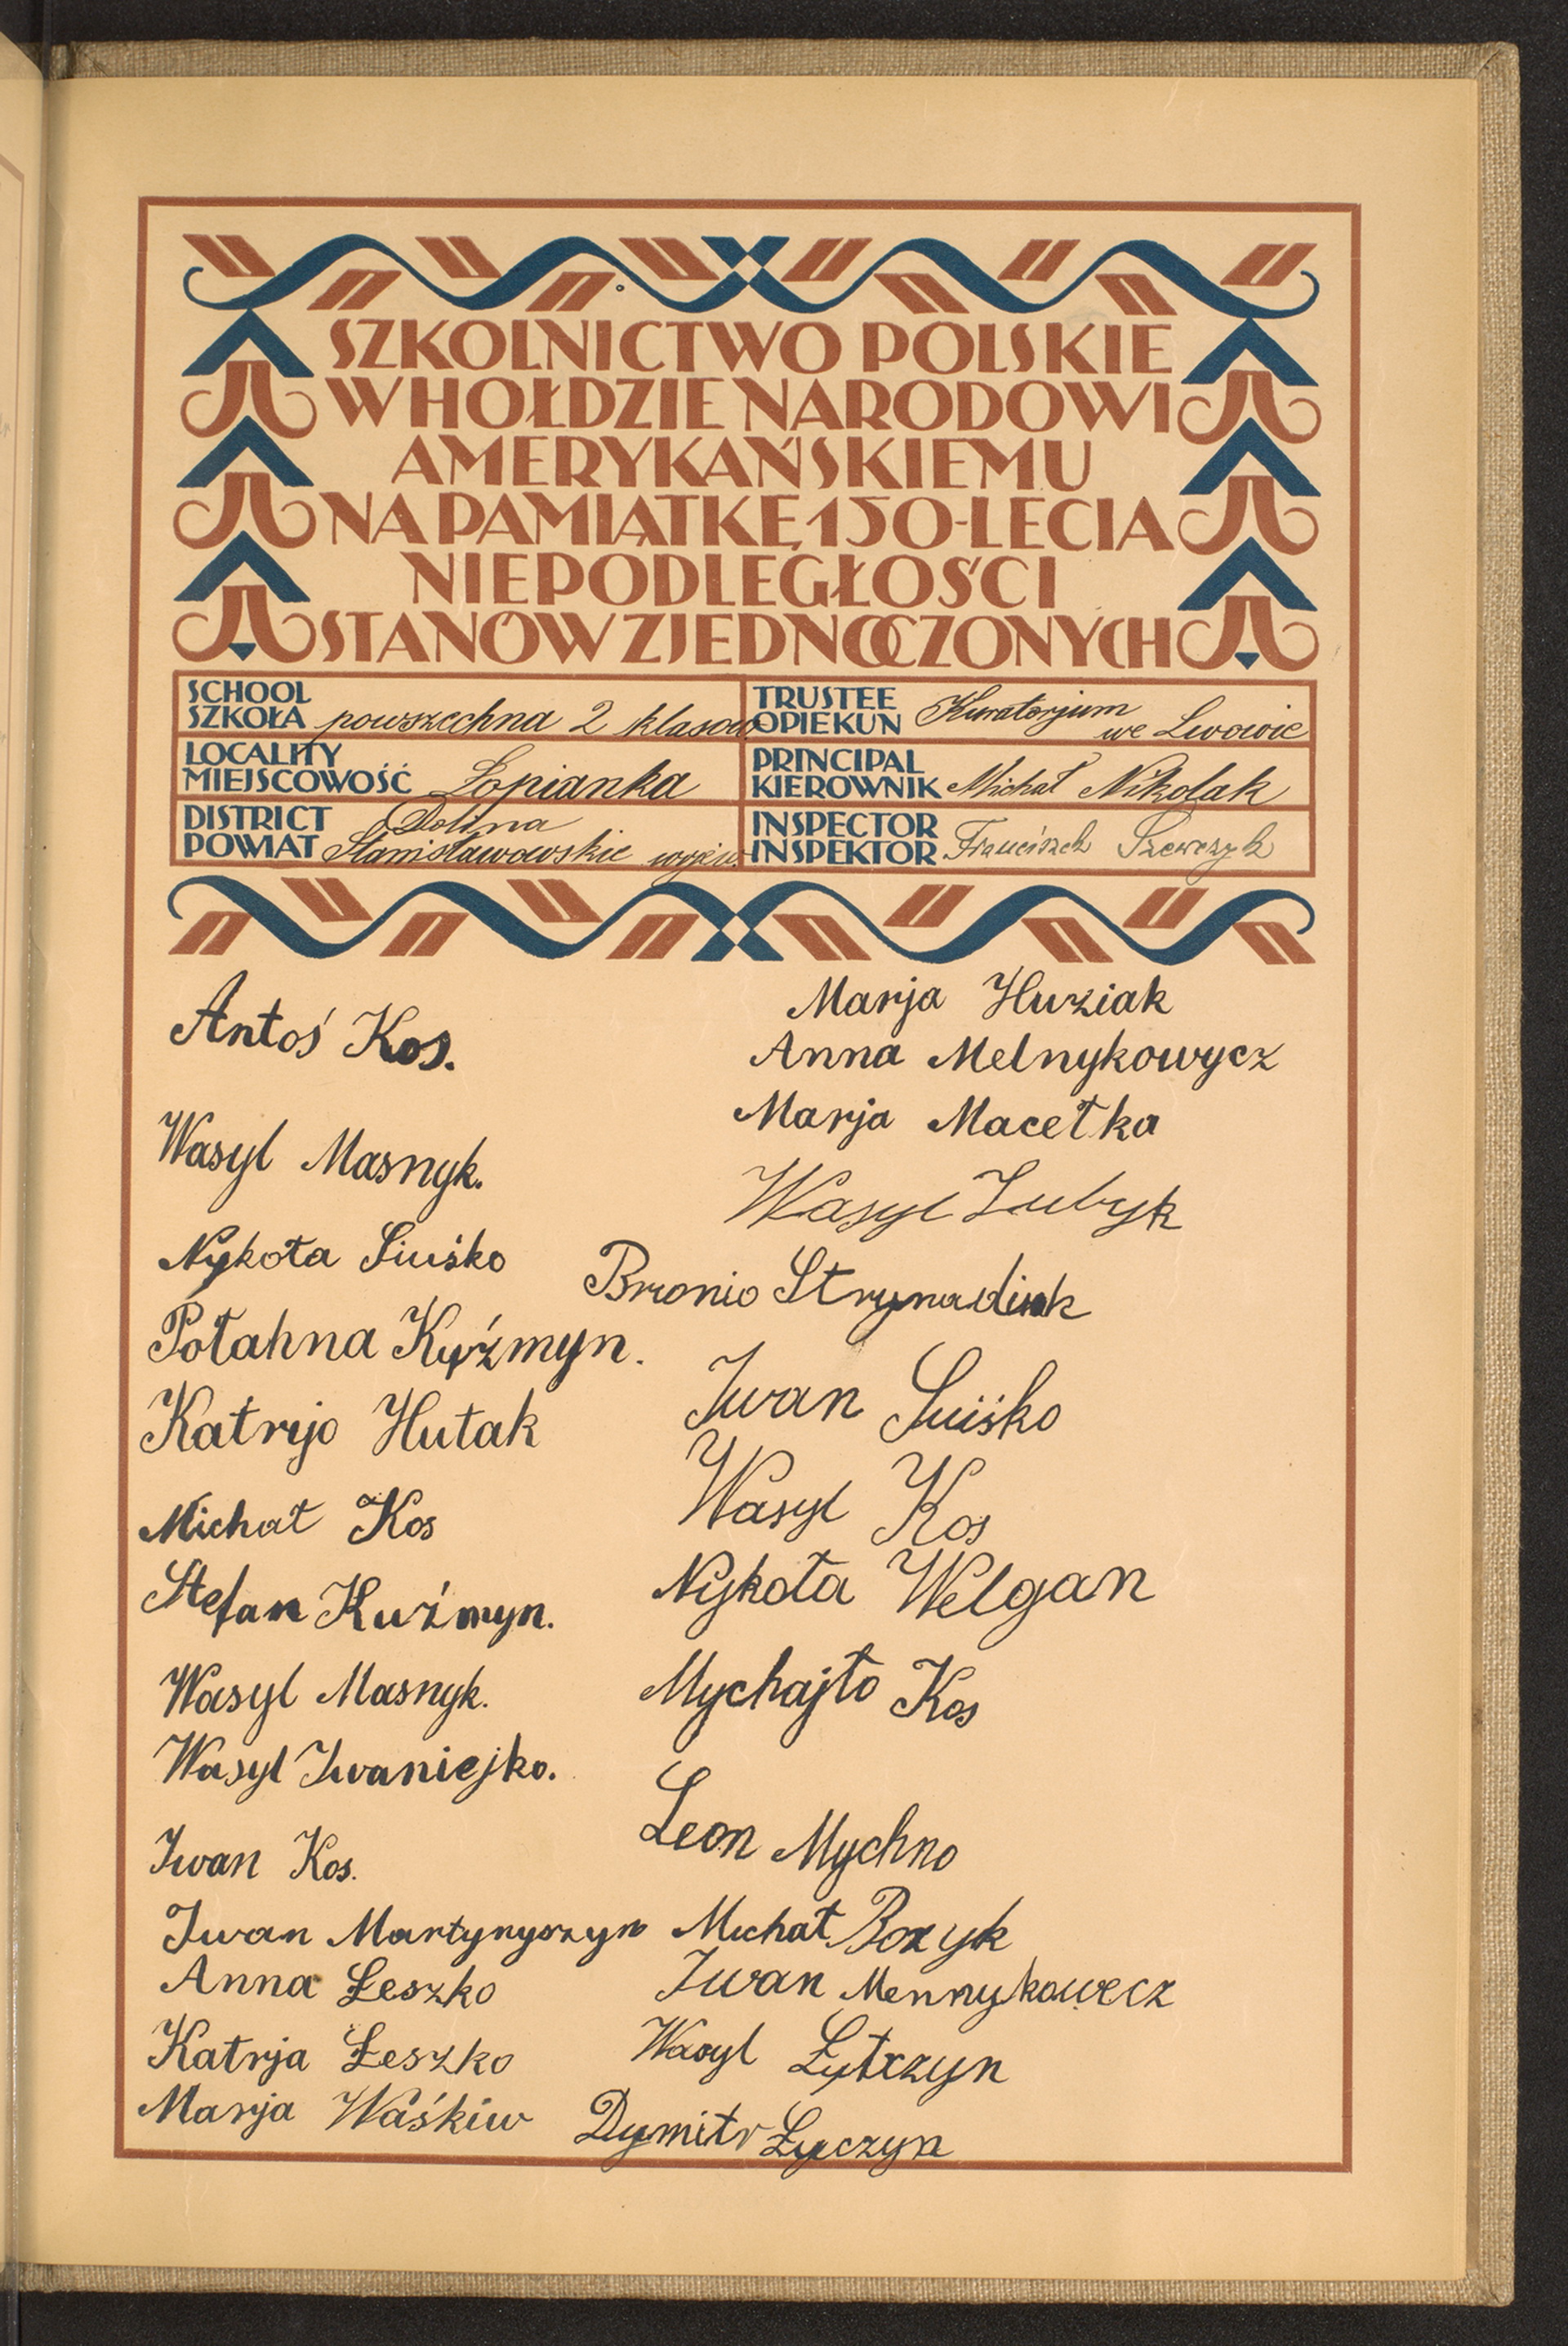 SZKOLNICTWO POLSKIE
W HOŁDZIE NARODOWI
AMERYKAŃSKIEMU
NA PAMIĄTKĘ 150-LECIA
NIEPODLEGŁOŚCI
STANÓW ZJEDNOCZONYCH
SCHOOL
SZKOŁA powszechna 2 klasow.
TRUSTEE
OPIEKUN Kuratorjum
we Lwowie
LOCALITY
MIEJSCOWOŚĆ Łopianka
PRINCIPAL
KIEROWNIK Michał Nikolak
DISTRICT Dolina
POWIAT Stanisławowskie wojew.
INSPECTOR
INSPEKTOR Franciszek Szewczyk
Antoś Kos.
Wasyl Masnyk.
Nykoła Siuśko
Połahna Kuźmyn.
Katryjo Hutak
Michał Kos
Stefan Kuźmyn.
Wasyl Masnyk.
Wasyl Iwaniejko.
Iwan Kos.
Iwan Martynyszyn
Anna Łeszko
Katrja Łeszko
Marja Waśkiw
Marja Huziak
Anna Melnykowycz
Marja Macełka
Wasyl Zubyk
Bronio Strynadiuk
Iwan Suiśko
Wasyl Kos
Nykoła Welgan
Mychajło Kos
Leon Mychno
Michał Bozyk
Iwan Mennykowecz
Wasyl Łytczyn
Dymitr Łyczyn